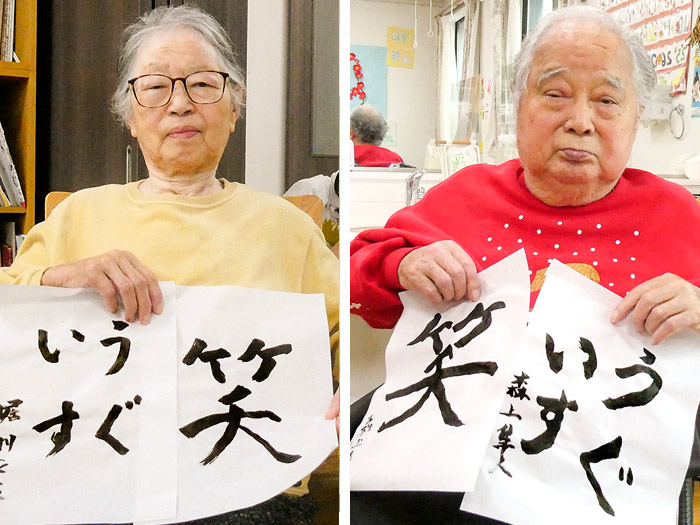 笑
うぐ
いす
うぐ
いす
森上
笑